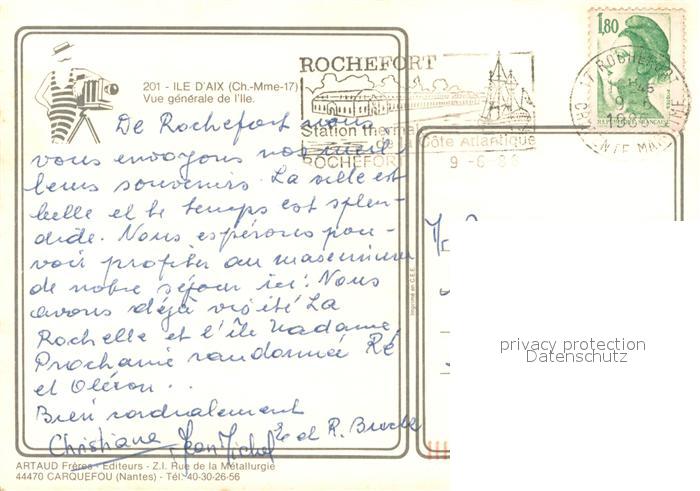 201 - ILE D'AIX (Ch.-Mme-17)
Vue générale de l'Ile.
ROCHEFORT
Station thermale
de la Côte Atlantique
ROCHEFORT 9-6-86
1,80
REPUBLIQUE FRANÇAISE
De Rochefort nous
vous envoyons nos meil
leurs souvenirs. La ville est
belle et le temps est splen-
dide. Nous espérons pou-
voir profiter au maximum
de notre séjour ici. Nous
avons déjà visité La
Rochelle et l'île Madame,
Prochaine randonnée Ré
et Oléron..
Bien cordialement
Christiane Jean Michel et R.
Imprimé en C.E.E.
privacy protection
Datenschutz
ARTAUD Frères - Editeurs - Z.I. Rue de la Métallurgie
44470 CARQUEFOU (Nantes) - Tél. 40-30-26-56